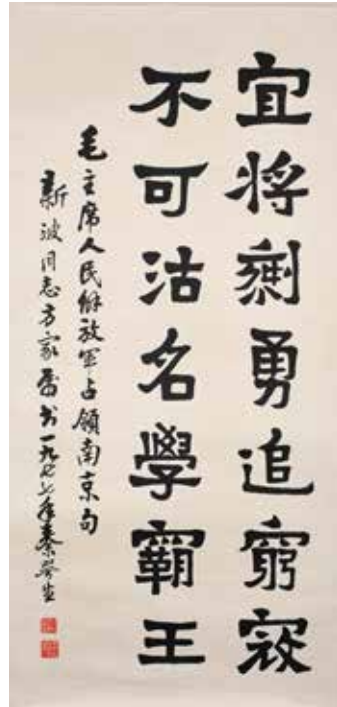 宜将剩勇追窮寇
不可沽名學霸王
毛主席人民解放军占領南京句
新波同志方家属书一九七七年秦咢生